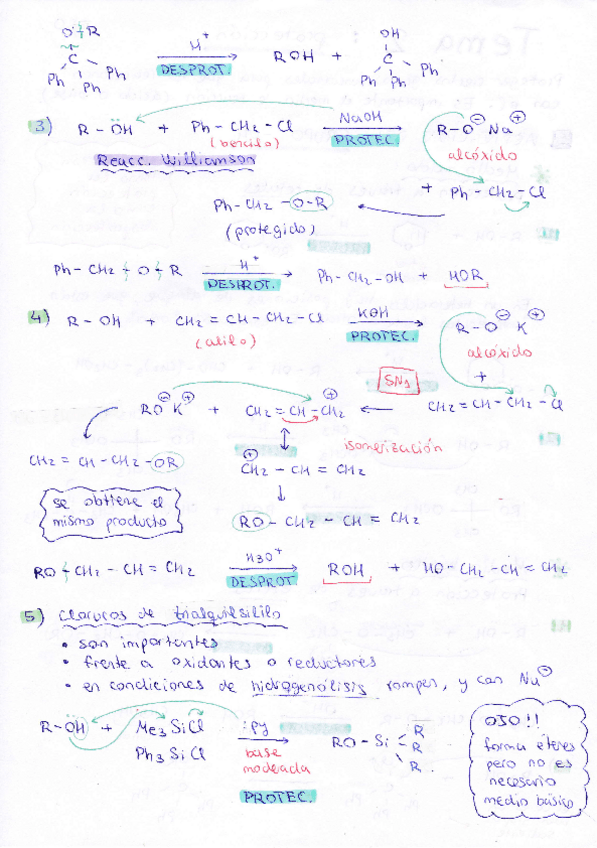 O-R OH
C H⁺ → ROH + C
Ph Ph Ph DESPROT. Ph Ph Ph
3) R-ÖH + Ph-CH2-Cl NaOH → R-O⊖ Na⊕
(bencilo) PROTEC.
Reacc. Williamson alcóxido
+ Ph-CH2-Cl
Ph-CH2-O-R
(protegido)
Ph-CH2-O-R H⁺ → Ph-CH2-OH + HOR
DESPROT.
4) R-OH + CH2=CH-CH2-Cl KOH → R-O⊖ K⊕
(alilo) PROTEC.
alcóxido
SN1 +
RO⊖ K⊕ + CH2=CH-CH2⊕ ← CH2=CH-CH2-Cl
↕ isomerización
CH2=CH-CH2-OR ⊕CH2-CH=CH2
se obtiene el ↓
mismo producto RO-CH2-CH=CH2
RO-CH2-CH=CH2 H3O⁺ → ROH + HO-CH2-CH=CH2
DESPROT
5) Cloruros de trialquilsililo
• son importantes
• frente a oxidantes o reductores
• en condiciones de hidrogenólisis rompen, y con Nu⊖
R-ÖH + Me3SiCl :py → RO-Si R R R
Ph3SiCl base
moderada
PROTEC.
OJO!!
forma éteres
pero no es
necesario
medio básico